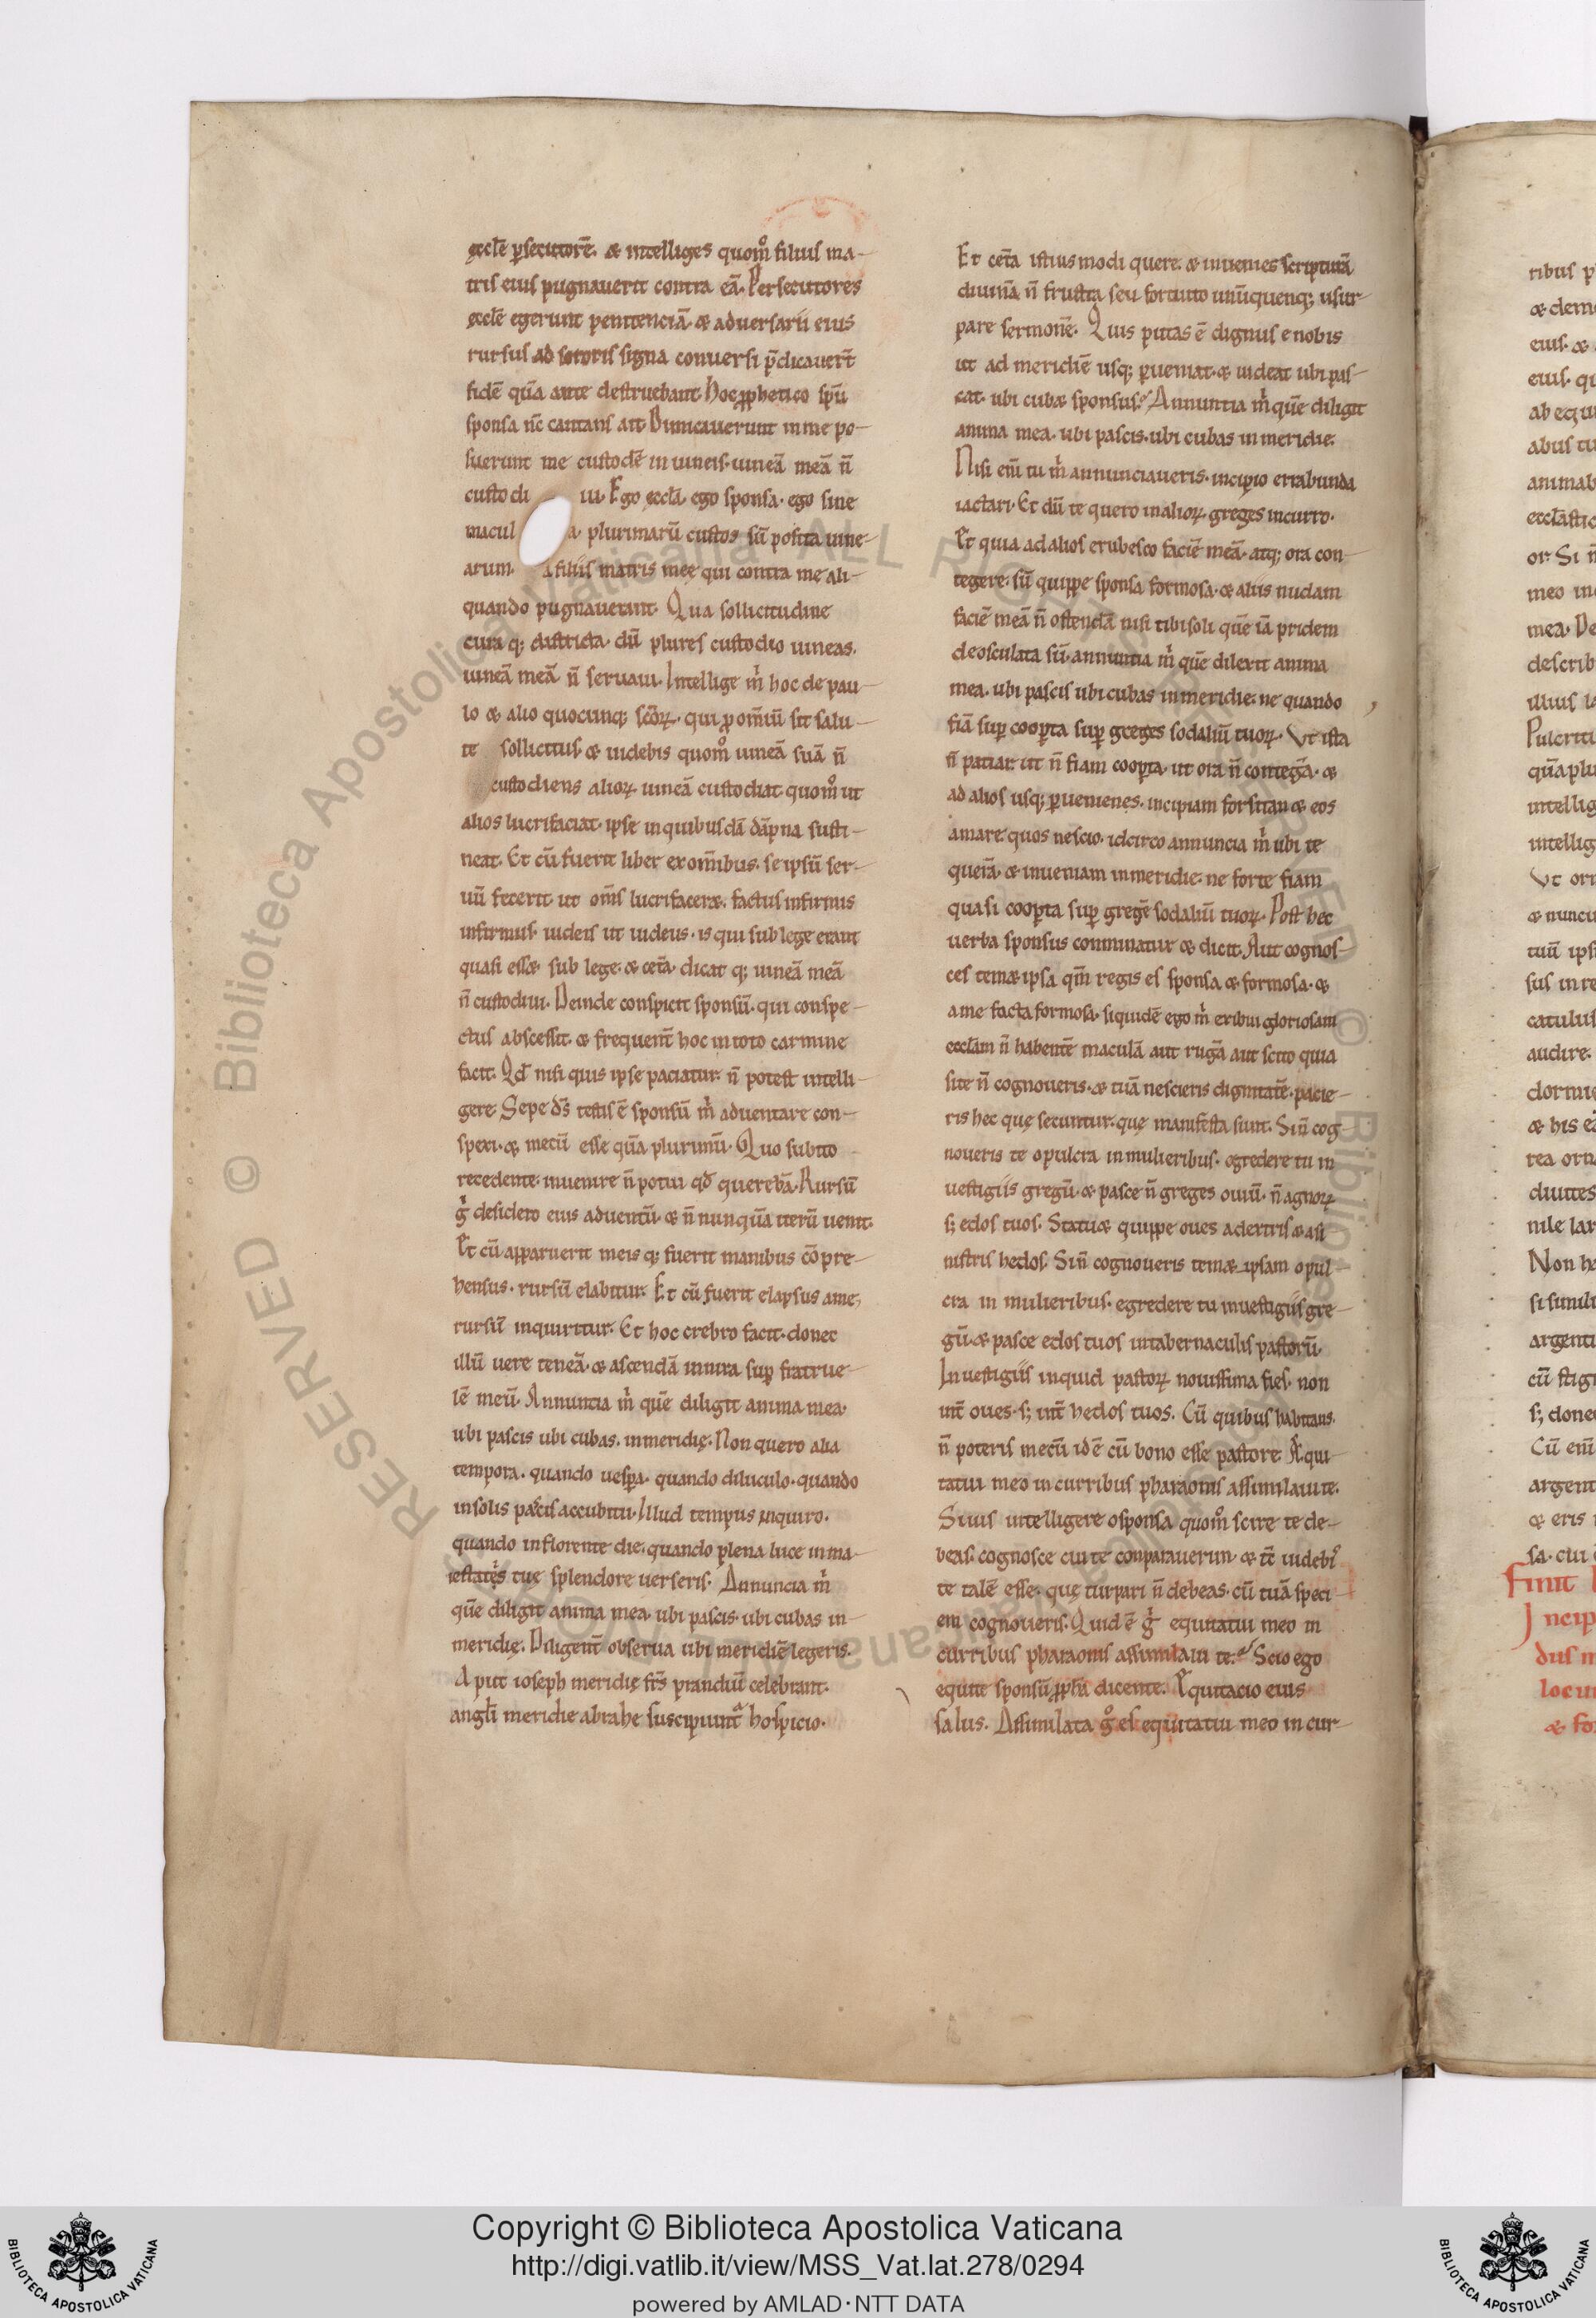 ęccl̄e p̄secutorē. & intelliges quom̊ filius ma-
tris eius pugnauerit contra eā. Persecutores
ęccl̄e egerunt penitenciā & aduersarii eius
rursus ad sororis signa conuersi p̄dicauer̄t
fidē quā ante destruebant. Hoc ꝓphetico sp̄u
sponsa nc̄ cantans ait. Dimicauerunt in me po-
suerunt me custodē in uineis. uineā meā n̄
custodi ui. Ego ęccl̄a. ego sponsa. ego sine
macul a. plurimarū custos sū posita uine-
arum. a filiis matris meę qui contra me ali-
quando pugnauerant. Qua sollicitudine
cura q; districta. dū plures custodio uineas.
uineā meā n̄ seruaui. Intellige m̍ hoc de pau-
lo & alio quocunq; sc̄oꝝ. qui ꝓ om̄iū sit salu-
te sollicitus & uidebis quom̊ uineā suā n̄
custodiens alioꝝ uineā custodiat. quom̊ ut
alios lucrifaciat. ipse in quibusdā dāpna susti-
neat. Et cū fuerit liber ex om̄ibus. se ipsū ser-
uū fecerit ut om̄s lucrifacer&. factus infirmis
infirmus. iudeis ut iudeus. is qui sub lege erant
quasi ess& sub lege. & cet̄a. dicat q; uineā meā
n̄ custodiui. Deinde conspicit sponsū. qui conspe-
ctus abscessit. & frequent̄ hoc in toto carmine
facit. Qd̄ nisi quis ipse paciatur. n̄ potest intelli-
gere. Sepe ds̄ testis ē sponsū m̍ aduentare con-
spexi. & mecū esse quā plurimū. Quo subito
recedente. inuenire n̄ potui qd̄ querebā. Rursū
g̍ desidero eius aduentū. & n̄ nunquā iterū uenit.
Et cū apparuerit meis q; fuerit manibus cōpre-
hensus. rursū elabitur. Et cū fuerit elapsus a me,
rursū inquiritur. Et hoc crebro facit. donec
illū uere teneā. & ascendā innixa suꝑ fratrue-
lē meū. Annuntia m̍ quē diligit anima mea.
ubi pascis ubi cubas. in meridię. Non quero alia
tempora. quando uesꝑa. quando diluculo. quando
in solis pascis accubitu. Illud tempus inquiro.
quando in florente die. quando plena luce in ma-
iestatęs tuę splendore uerseris. Annuncia m̍
quē diligit anima mea. ubi pascis. ubi cubas in
meridię. Diligent̄ obserua ubi meridiē legeris.
Aput ioseph meridię frs̄ prandiū celebrant.
angli̅ meridie abrahe suscipiunt̃ hospicio.
Et cet̄a istius modi quere. & inuenies scripturā
diuinā n̄ frustra seu fortuito unūquenq; usur-
pare sermonē. Quis putas ē dignus e nobis
ut ad meridiē usq; ꝑueniat. & uideat ubi pas-
cat. ubi cub& sponsus? Annuntia m̍ quē diligit
anima mea. ubi pascis. ubi cubas in meridie.
Nisi eni̅ tu m̍ annunciaueris. incipio errabunda
iactari. Et dū te quero in alioꝝ greges incurro.
Et quia ad alios erubesco faciē meā. atq; ora con-
tegere. sū quippe sponsa formosa. & aliis nudam
faciē meā n̄ ostendā nisi tibi soli quē iā pridem
deosculata sū. annuntia m̍ quē dilexit anima
mea. ubi pascis ubi cubas in meridie: ne quando
fiā suꝑ cooꝑta suꝑ greges sodaliū tuoꝝ. Ut ista
n̄ patiar. ut n̄ fiam cooꝑta. ut ora n̄ contegā. &
ad alios usq; ꝑueniens. incipiam forsitan & eos
amare quos nescio. idcirco annuncia m̍ ubi te
querā. & inueniam in meridie. ne forte fiam
quasi cooꝑta suꝑ gregē sodaliū tuoꝝ. Post hec
uerba sponsus comminatur & dicit. Aut cognos-
ces tem& ipsa qm̄ regis es sponsa & formosa. &
a me facta formosa. siquidē ego m̍ exibui gloriosam
eccl̄am n̄ habentē maculā aut rugā aut scito quia
si te n̄ cognoueris. & tuā nescieris dignitatē. pacie-
ris hec quę secuntur. quę manifesta sunt. Si n̄ cog-
noueris te o pulcra in mulieribus. egredere tu in
uestigiis gregū. & pasce n̄ greges ouiū. n̄ agnoꝝ
s; edos tuos. Statu& quippe oues a dextris & a si-
nistris hedos. Si n̄ cognoueris tem& ipsam o pul-
cra in mulieribus. egredere tu in uestigiis gre-
gū. & pasce edos tuos in tabernaculis pastorū.
In uestigiis inquid pastoꝝ nouissima fies. non
int̄ oues. s; int̄ hedos tuos. Cū quibus habitans.
n̄ poteris mecū id ē cū bono esse pastore. Aequi-
tatui meo in curribus pharaonis assimilaui te.
Si uis intelligere o sponsa quom̊ scire te de-
beas. cognosce cui te conparauerim. & tc̄ uidebi᷒
te talē esse. quę turpari n̄ debeas. cū tuā speci-
em cognoueris. Quid ē g̍ equitatui meo in
curribus pharaonis assimilaui te? Scio ego
equite sponsū ꝓph̄a dicente. Equitacio eius
salus. Assimilata g̊ es equitatui meo in cur-
Copyright © Biblioteca Apostolica Vaticana
http://digi.vatlib.it/view/MSS_Vat.lat.278/0294
powered by AMLAD·NTT DATA
BIBLIOTECA APOSTOLICA VATICANA
BIBLIOTECA APOSTOLICA VATICANA